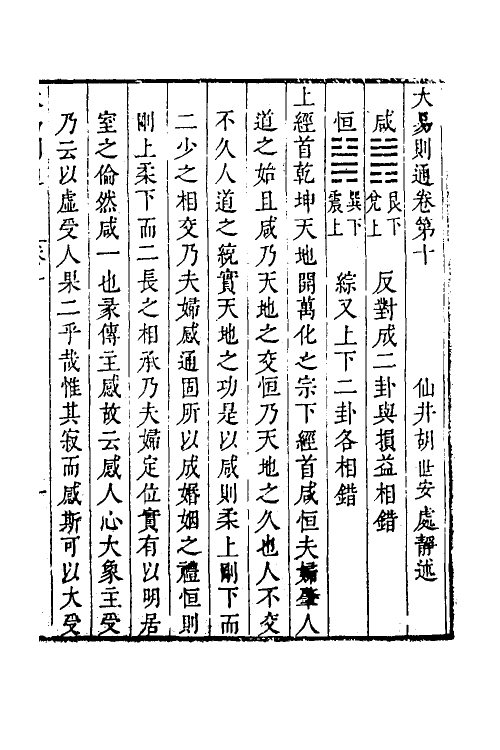 大易則通卷第十　仙井胡世安處靜述
咸䷞艮下兌上　反對成二卦與損益相錯
恒䷟巽下震上　綜又上下二卦各相錯
上經首乾坤天地開萬化之宗下經首咸恒夫婦肇人
道之始且咸乃天地之交恒乃天地之久也人不交
不久人道之統實天地之功是以咸則柔上剛下而
二少之相交乃夫婦感通固所以成婚姻之禮恒則
剛上柔下而二長之相承乃夫婦定位實有以明居
室之倫然咸一也彖傳主感故云感人心大象主受
乃云以虛受人果二乎哉惟其寂而感斯可以大受